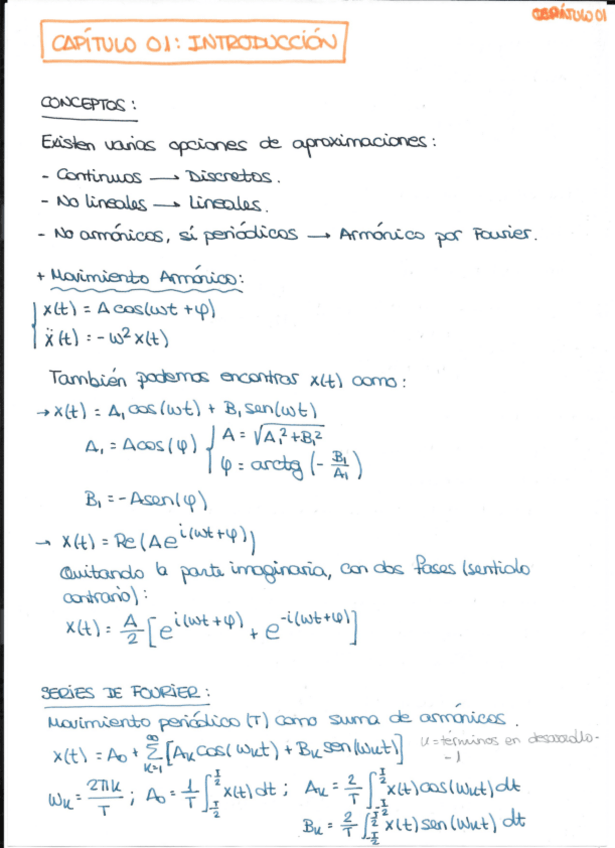 CAPÍTULO 01
CAPÍTULO 01: INTRODUCCIÓN
CONCEPTOS:
Existen varias opciones de aproximaciones:
- Continuos → Discretos.
- No lineales → Lineales.
- No armónicos, sí periódicos → Armónico por Fourier.
+ Movimiento Armónico:
x(t) = A cos(ωt + φ)
ẍ(t) = -ω² x(t)
También podemos encontrar x(t) como:
→ x(t) = A₁ cos(ωt) + B₁ sen(ωt)
A₁ = A cos(φ) { A = √(A₁² + B₁²)
φ = arctg (-B₁/A₁)
B₁ = -A sen(φ)
→ x(t) = Re(A e^{i(ωt+φ)})
Quitando la parte imaginaria, con dos fases (sentido
contrario):
x(t) = A/2 [e^{i(ωt+φ)} + e^{-i(ωt+φ)}]
SERIES DE FOURIER:
Movimiento periódico (T) como suma de armónicos.
x(t) = A₀ + ∑_{k=1}^{∞} [A_k cos(ω_k t) + B_k sen(ω_k t)] k = términos en desarrollo
-1
ω_k = 2πk/T ; A₀ = 1/T ∫_{-T/2}^{T/2} x(t) dt ; A_k = 2/T ∫_{-T/2}^{T/2} x(t) cos(ω_k t) dt
B_k = 2/T ∫_{-T/2}^{T/2} x(t) sen(ω_k t) dt